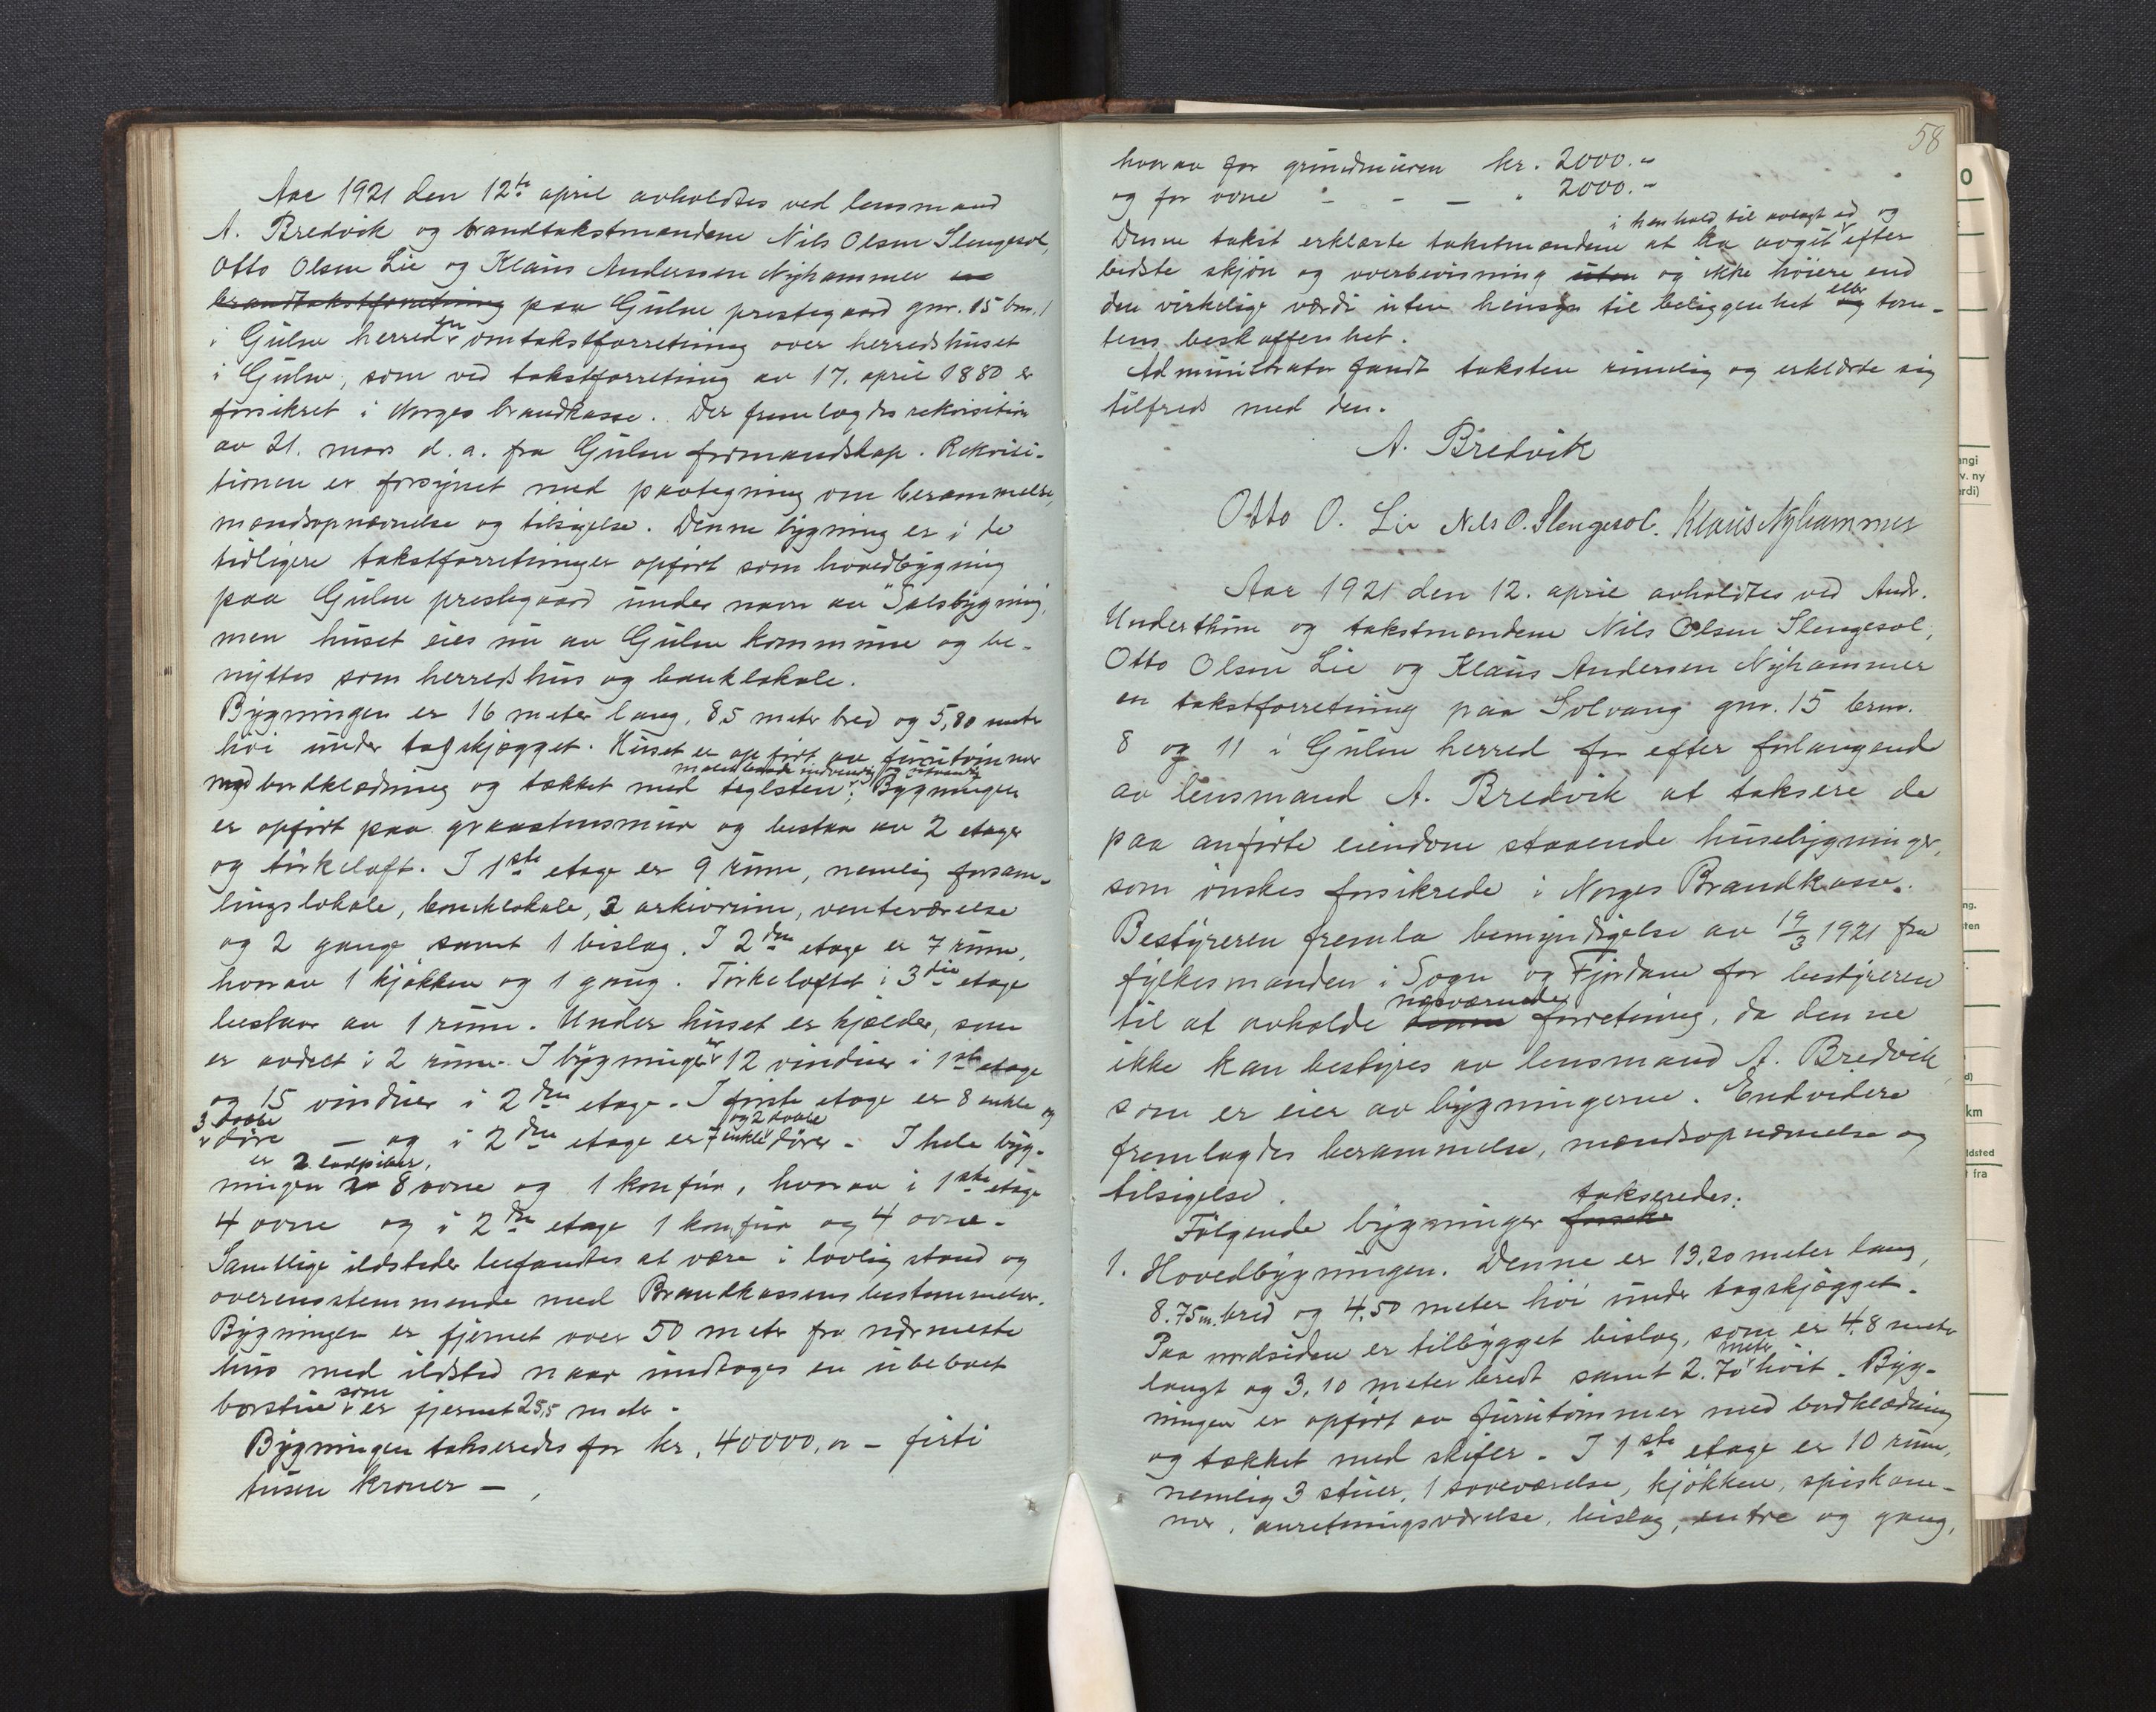 Aar 1921 den 12te april avholdtes ved lensmand
A. Bredvik og brandtakstmændene Nils Olsen Slengesol,
Otto Olsen Lie og Klaus Andersen Nyhammer en
brandtakstforretning paa Gulen prestegaard gnr. 15 bnr. 1
i Gulen herred en omtakstforretning over herredshuset
i Gulen, som ved takstforretning av 17. april 1880 er
forsikret i Norges brandkasse. Der fremlagdes rekvisition
av 21. mars d. a. fra Gulen formandskap. Rekvisi-
tionen er forsynet med paategning om berammelse,
mændsopnævnelse og tilsigelse. Denne bygning er i de
tidligere takstforretninger opført som hovedbygning
paa Gulen prestegaard under navn av "Salsbygning",
men huset eies nu av Gulen kommune og be-
nyttes som herredshus og banklokale.
Bygningen er 16 meter lang, 8,5 meter bred og 5,80 meter
høi under tagskjægget. Huset er opført av furutømmer
malet baade indvendig og utvendig
med bordklædning og tækket med teglsten; Bygningen
er opført paa graastensmur og bestaar av 2 etager
og tørkeloft. I 1ste etage er 9 rum, nemlig forsam-
lingslokale, banklokale, 3 arkivrum, venteværelse
og 2 gange samt 1 bislag. I 2den etage er 7 rum,
hvorav 1 kjøkken og 1 gang. Tørkeloftet i 3die etage
bestaar av 1 rum. Under huset er kjælder, som
er avdelt i 2 rum. I bygningen er 12 vinduer i 1ste etage
og 15 vinduer i 2den etage. I første etage er 8 enkle og
3 doble og 2 doble
døre — og i 2den etage er 7 enkle døre. I hele byg-
er 2 ladpiber,
ningen 8 ovne og 1 komfur, hvorav i 1ste etage
4 ovne og i 2den etage 1 komfur og 4 ovne.
Samtlige ildsteder befandtes at være i lovlig stand og
overensstemmende med Brandkassens bestemmelser.
Bygningen er fjernet over 50 meter fra nærmeste
hus med ildsted naar undtages en ubeboet
borstue som er fjernet 25,5 meter.
Bygningen takseredes for kr. 40000,00 – førti
tusen kroner –
58
hvorav for grundmuren kr. 2000.-
og for ovne - - — " 2000.-
i henhold til avlagt ed og
Denne takst erklærte takstmændene at ha avgit efter
bedste skjøn og overbevisning uten og ikke høiere end
den virkelige værdi uten hensyn til beliggenhet og eller tom-
tens beskaffenhet.
Administrator fandt taksten rimelig og erklærte sig
tilfreds med den.
A. Bredvik
Otto O. Lie Nils O. Slengesol. Klaus Nyhammer
Aar 1921 den 12. april avholdtes ved Andr.
Underthun og takstmændene Nils Olsen Slengesol,
Otto Olsen Lie og Klaus Andersen Nyhammer
en takstforretning paa Solvang gnr. 15 brnr.
8 og 11 i Gulen herred for efter forlangend
av lensmand A. Bredvik at taksere de
paa anførte eiendom staaende husebygninger,
som ønskes forsikrede i Norges Brandkasse.
Bestyreren fremla bemyndigelse av 19/3 1921 fra
fylkesmanden i Sogn og Fjordane for bestyreren
nærværende
til at avholde denne forretning, da denne
ikke kan bestyres av lensmand A. Bredvik,
som er eier av bygningerne. Endvidere
fremlagdes berammelse, mændsopnævnelse og
tilsigelse.
takseredes:
Følgende bygninger
1. Hovedbygningen. Denne er 13,20 meter lang,
8.75 m. bred og 4,50 meter høi under tagskjægget.
Paa nordsiden er tilbygget bislag, som er 4,8 meter
langt og 3,10 meter bredt samt 2.70 meter høit. Byg-
ningen er opført av furutømmer med bordklædning
og tækket med skifer. I 1ste etage er 10 rum,
nemlig 3 stuer, 1 soveværelse, kjøkken, spiskam-
mer, anretningsværelse, bislag, entre og gang,